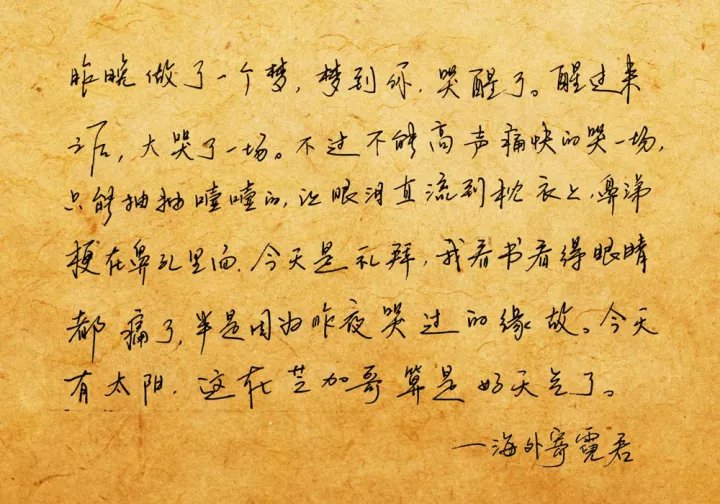 昨晚做了一个梦，梦到你，哭醒了。醒过来
之后，大哭了一场。不过不能高声痛快的哭一场，
只能抽抽噎噎的，让眼泪直流到枕衣上，鼻涕
梗在鼻孔里面。今天是礼拜，我看书看得眼睛
都痛了，半是因为昨夜哭过的缘故。今天
有太阳，这在芝加哥算是好天气了。
—海外寄霓君